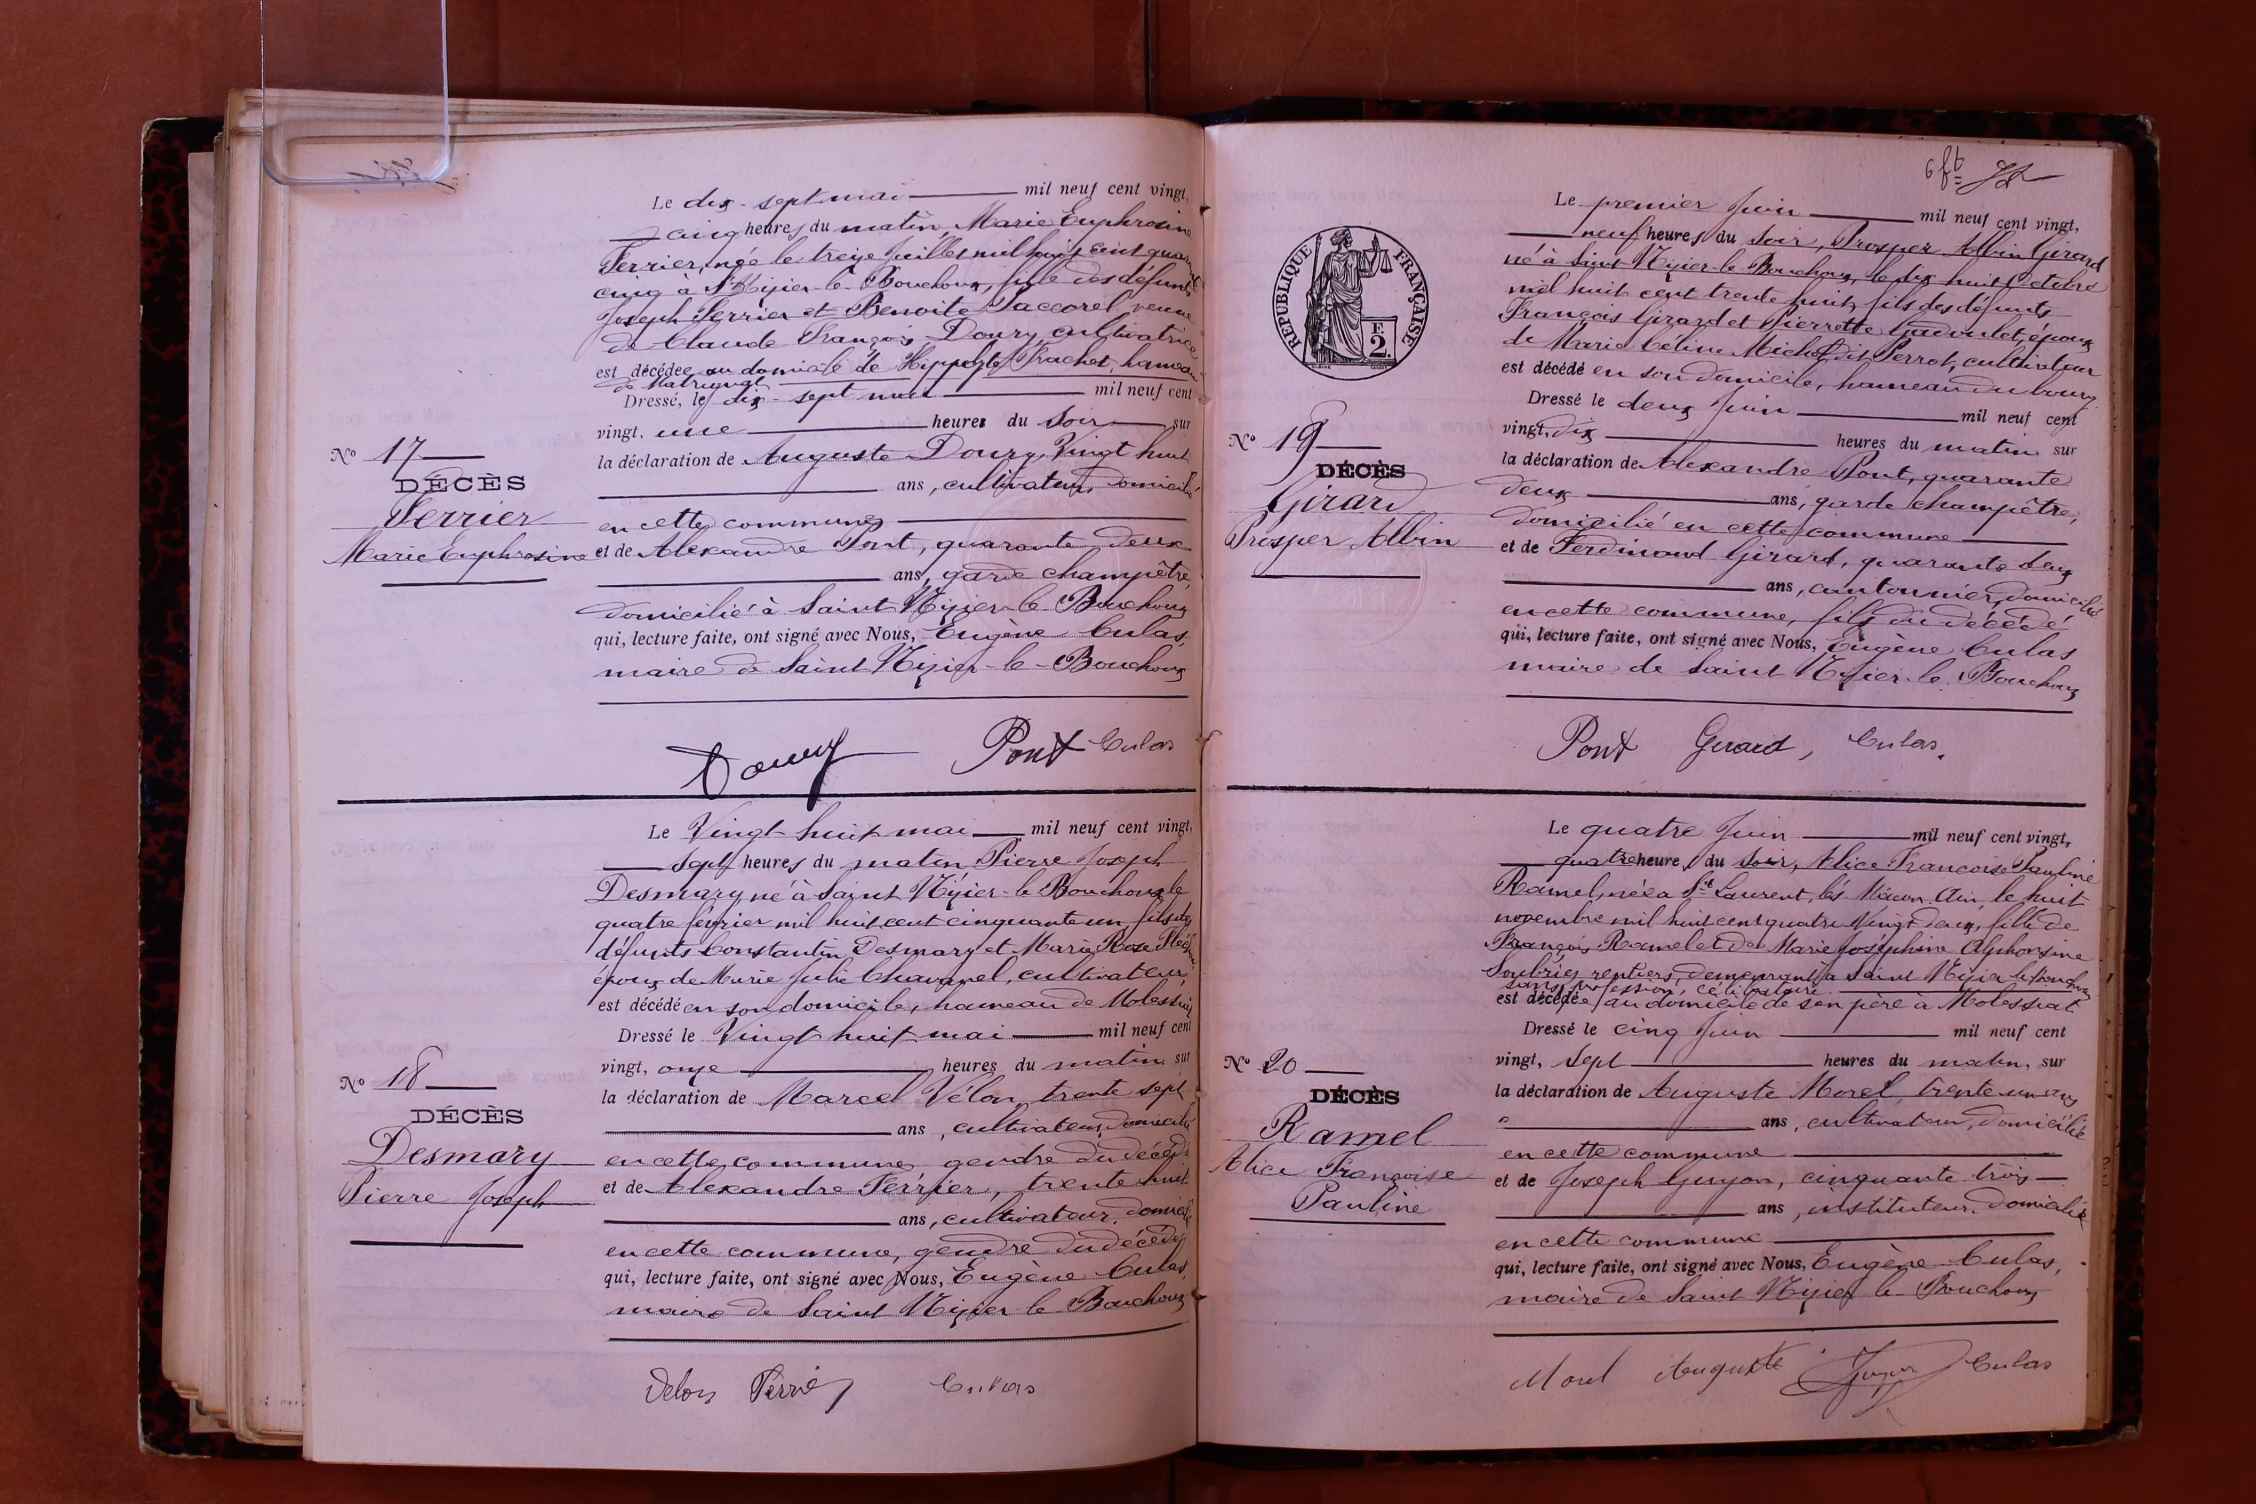 Le dix-sept mai mil neuf cent vingt,
cinq heures du matin, Marie Euphrosine
Perrier, née le treize Juillet mil huit cent quarante
cinq à St Nizier-le-Bouchoux, fille des défunts
Joseph Perrier et Benoite Paccorel, veuve
de Claude François Doury, cultivatrice
est décédée au domicile de Hippolyte Trachet, hameau
de
Dressé, le dix-sept mai mil neuf cent
vingt, une heures du soir sur
la déclaration de Auguste Doury, Vingt huit
ans, cultivateur, domicilié
en cette commune
et de Alexandre Pont, quarante deux
ans, garde champêtre,
domicilié à Saint Nizier-le-Bouchoux
qui, lecture faite, ont signé avec Nous, Eugène Culas,
maire de Saint Nizier-le-Bouchoux
No 17
DÉCÈS
Perrier
Marie Euphrosine
Doury Pont Culas
Le Vingt huit mai mil neuf cent vingt,
sept heures du matin, Pierre Joseph
Desmary, né à Saint Nizier-le-Bouchoux le
quatre février mil huit cent cinquante un, fils des
défunts Constantin Desmary et Marie Rose
époux de Marie Julie Chavanel, cultivateur,
est décédé en son domicile, hameau de Molessiat
Dressé le Vingt huit mai mil neuf cent
vingt, onze heures du matin sur
la déclaration de Marcel Vélon, trente sept
ans, cultivateur, domicilié
en cette commune, gendre du décédé
et de Alexandre Perrier, trente huit
ans, cultivateur, domicilié
en cette commune, gendre du décédé
qui, lecture faite, ont signé avec Nous, Eugène Culas,
maire de Saint Nizier-le-Bouchoux
No 18
DÉCÈS
Desmary
Pierre Joseph
Velon Perrier Culas
6 ft
Le premier Juin mil neuf cent vingt,
neuf heures du soir, Prosper Albin Girard
né à Saint Nizier-le-Bouchoux, le dix huit Octobre
mil huit cent trente huit, fils des défunts
François Girard et Pierrette Gadoulet, époux
de Marie Céline Michel dit Perrot, cultivateur
est décédé en son domicile, hameau du bourg
Dressé le deux Juin mil neuf cent
vingt, dix heures du matin sur
la déclaration de Alexandre Pont, quarante
deux ans, garde champêtre,
domicilié en cette commune
et de Ferdinand Girard, quarante deux
ans, cantonnier, domicilié
en cette commune, fils du décédé
qui, lecture faite, ont signé avec Nous, Eugène Culas
maire de Saint Nizier-le-Bouchoux
RÉPUBLIQUE FRANÇAISE
E
2
No 19
DÉCÈS
Girard
Prosper Albin
Pont Girard, Culas.
Le quatre Juin mil neuf cent vingt,
quatre heures du soir, Alice Françoise Pauline
Ramel, née à St Laurent, lès Mâcon Ain, le huit
novembre mil huit cent quatre Vingt deux, fille de
François Ramel et de Marie Joséphine Alphonsine
Soubriés, rentiers, demeurant à Saint Nizier le Bouchoux
sans profession, célibataire
est décédée au domicile de son père à Molessiat
Dressé le cinq Juin mil neuf cent
vingt, sept heures du matin, sur
la déclaration de Auguste Morel, trente un ans
ans, cultivateur, domicilié
en cette commune
et de Joseph Guyon, cinquante trois
ans, instituteur, domicilié
en cette commune
qui, lecture faite, ont signé avec Nous, Eugène Culas,
maire de Saint Nizier le-Bouchoux
No 20
DÉCÈS
Ramel
Alice Françoise
Pauline
Morel Auguste Guyon Culas